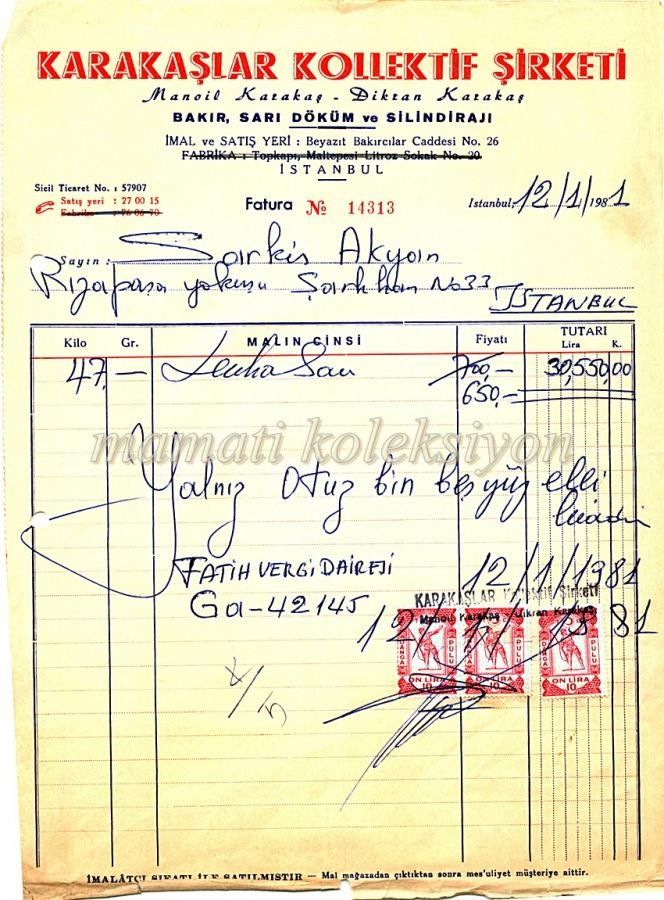 KARAKAŞLAR KOLLEKTİF ŞİRKETİ
Manoil Karakaş - Dikran Karakaş
BAKIR, SARI DÖKÜM ve SİLİNDİRAJI
İMAL ve SATIŞ YERİ : Beyazıt Bakırcılar Caddesi No. 26
FABRİKA : Topkapı, Maltepesi Litroz Sokak No. 20
İSTANBUL
Sicil Ticaret No. : 57907
Satış yeri : 27 00 15
Fabrika : 76 06 70
Fatura № 14313
Istanbul, 12/1/1981
Sayın : Sarkis Akyan
Rızapaşa yokuşu Şarkhan No 33
İSTANBUL
Kilo Gr. MALIN CİNSİ Fiyatı TUTARI
Lira K.
47,— Levha Sarı 700,— 30,550,00
650,—
mamati koleksiyon
Yalnız Otuz bin beşyüz elli
liradır
FATİH VERGİ DAİRESİ 12/1/1981
Ga-42145
KARAKAŞLAR Kolektif Şirketi
Manoil Karakaş - Dikran Karakaş
12/1/1981
DAMGA PULU DAMGA PULU DAMGA PULU
ON LİRA ON LİRA ON LİRA
10 10 10
İMALÂTÇI SIFATI İLE SATILMIŞTIR — Mal mağazadan çıktıktan sonra mes'uliyet müşteriye aittir.